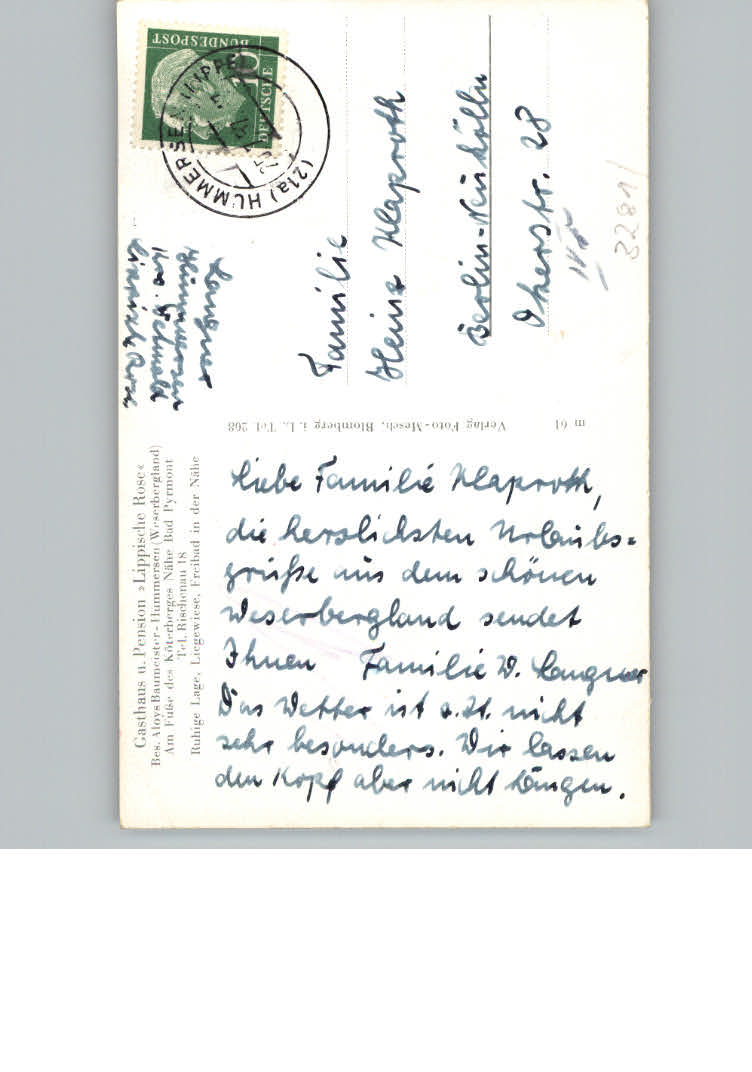 Gasthaus u. Pension »Lippische Rose«
Bes. Aloys Baumeister - Hummersen (Weserbergland)
Am Fuße des Köterberges Nähe Bad Pyrmont
Tel. Rischenau 18
Ruhige Lage, Liegewiese, Freibad in der Nähe
Liebe Familie Klaproth,
die herzlichsten Urlaubs=
grüße aus dem schönen
Weserbergland sendet
Ihnen Familie W. Langner
Das Wetter ist z.Zt. nicht
sehr besonders. Wir lassen
den Kopf aber nicht hängen.
Verlag Foto-Mesch, Blomberg i. L. Tel 268
m 61
Langner
Hummersen
Krs. Detmold
Lippische Rose
DEUTSCHE
BUNDESPOST
(21a) HUMMERSEN
Familie
Heinz Klaproth
Berlin-Neukölln
Okerstr. 28